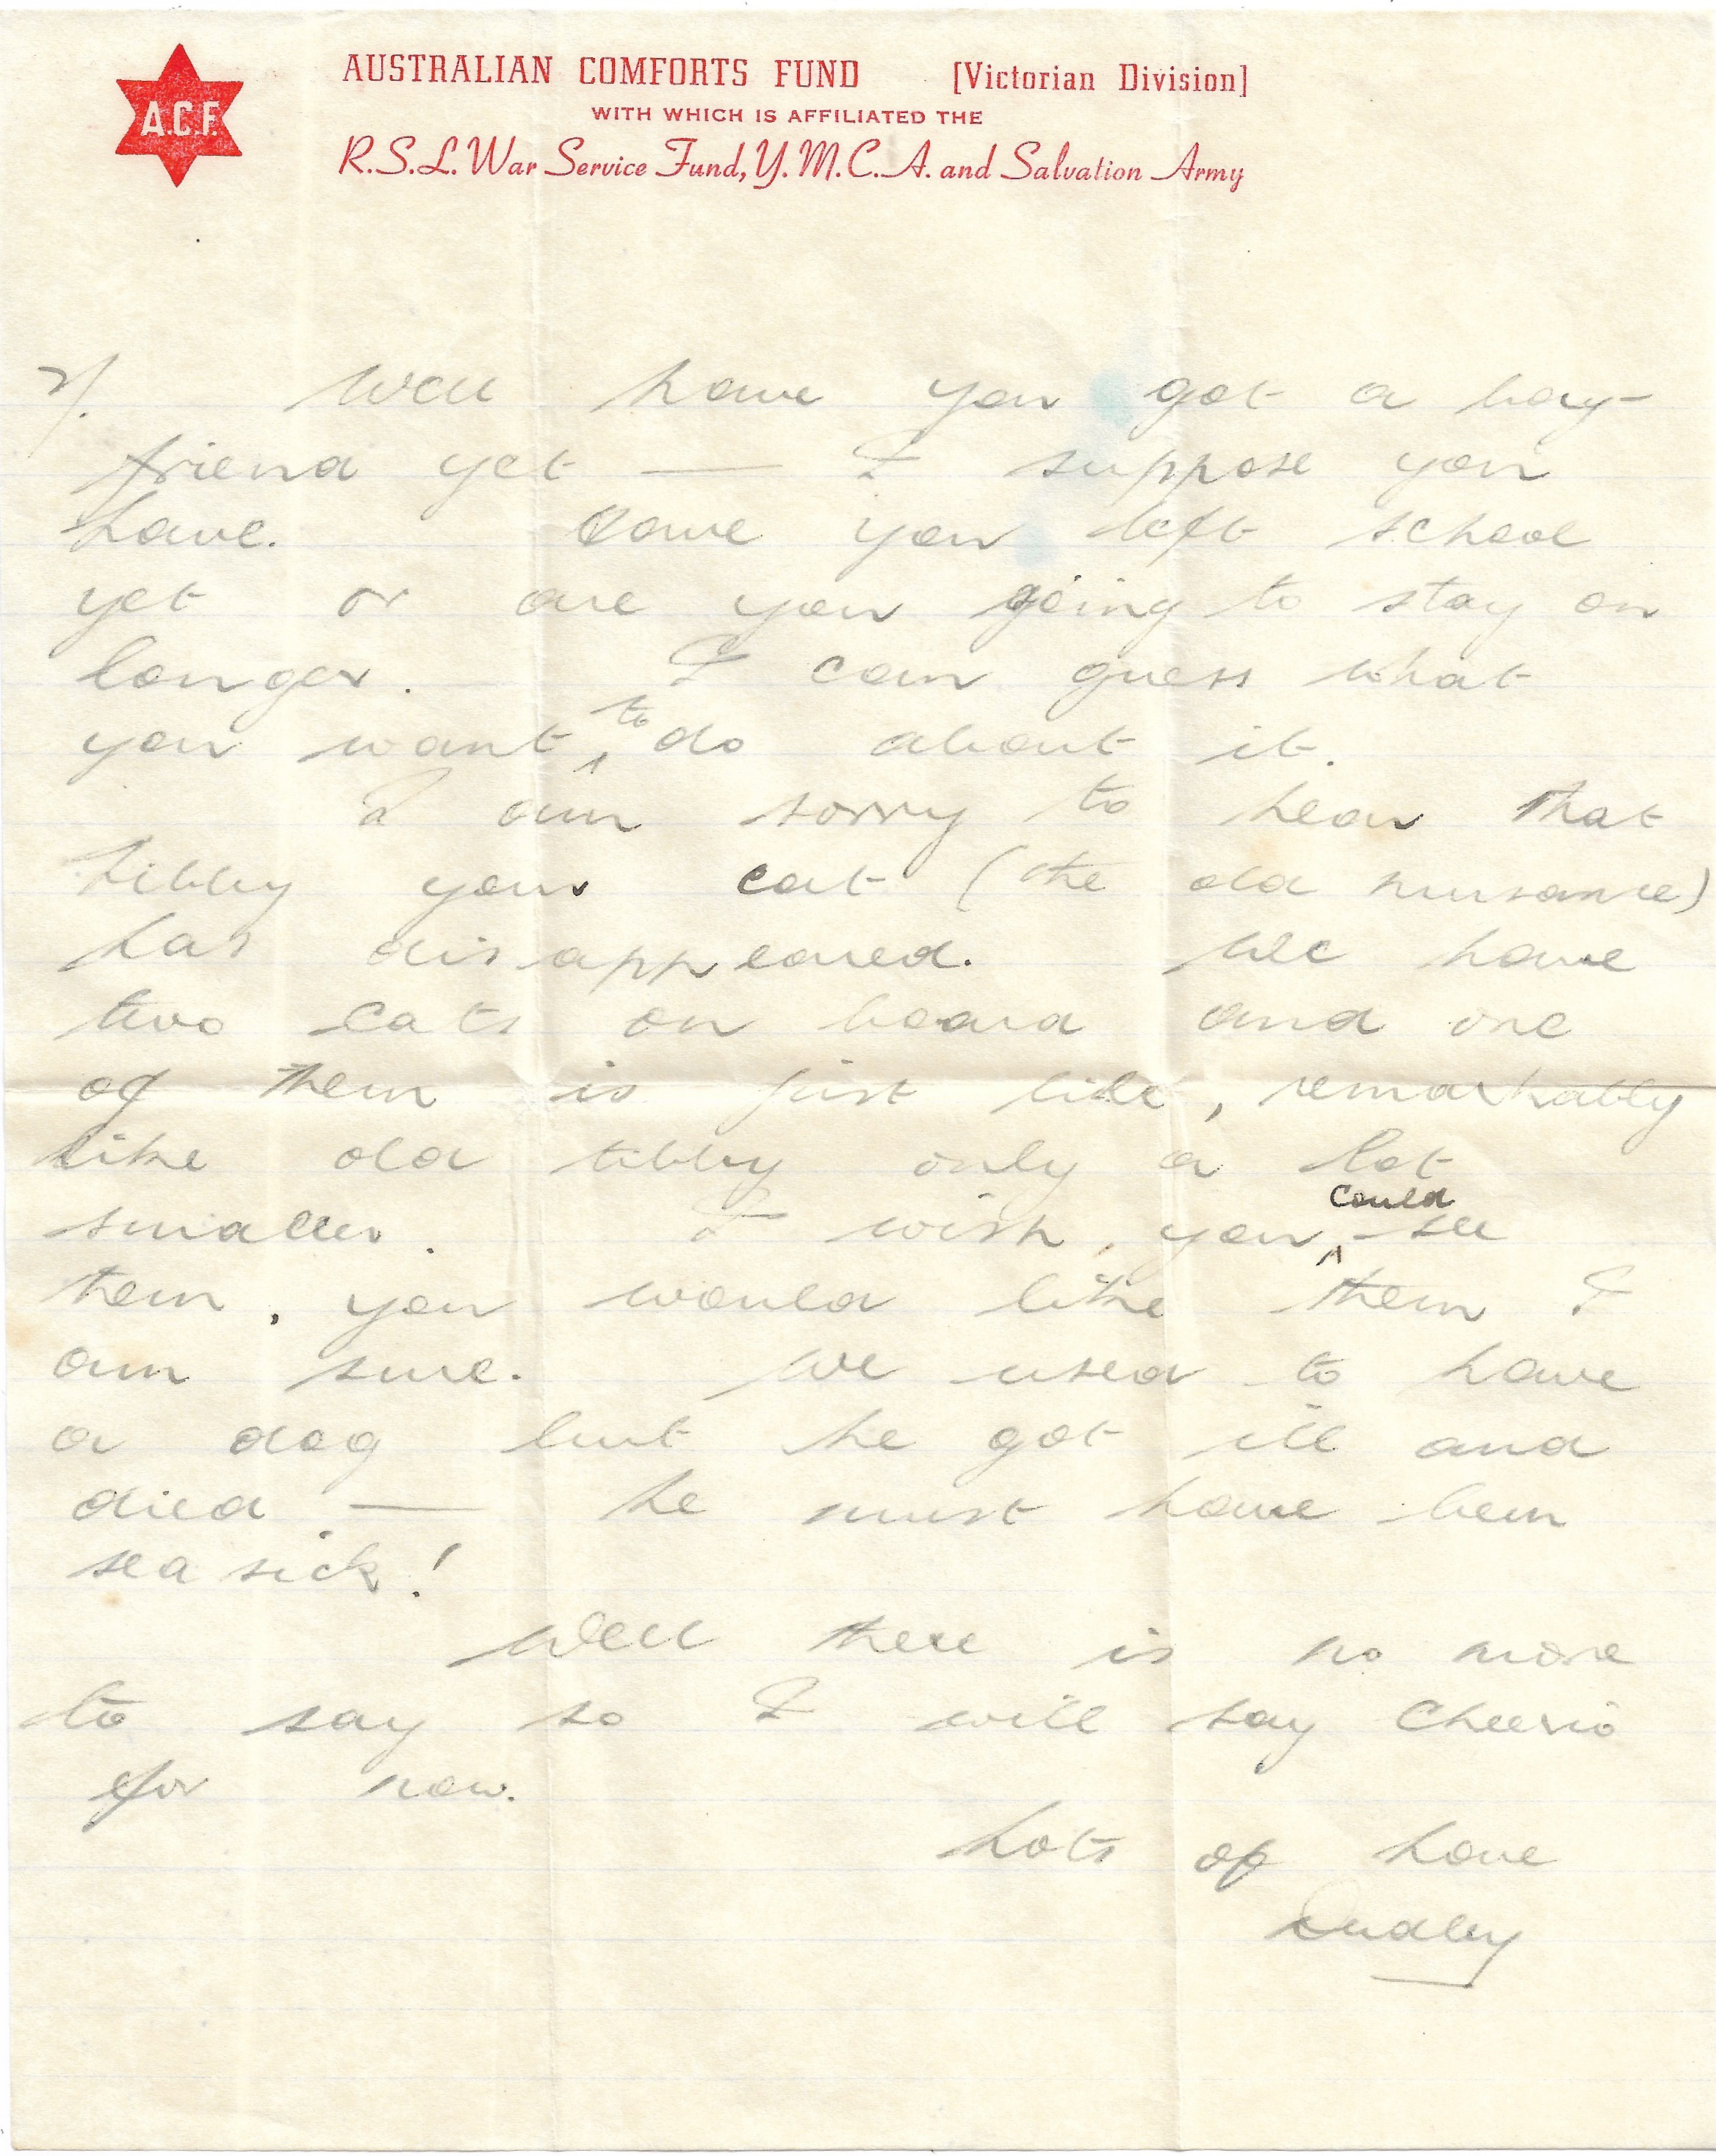 A.C.F.
AUSTRALIAN COMFORTS FUND [Victorian Division]
WITH WHICH IS AFFILIATED THE
R.S.L. War Service Fund, Y.M.C.A. and Salvation Army
Well have you got a boy-
friend yet — I suppose you
have. Have you left school
yet or are you going to stay on
longer. I can guess what
you want to do about it.
I am sorry to hear that
tibby your cat (the old nuisance)
has disappeared. We have
two cats on board and one
of them is just like, remarkably
like old tibby only a lot
smaller. I wish you could see
them, you would like them I
am sure. We used to have
a dog but he got ill and
died — he must have been
sea sick!
Well there is no more
to say so I will say Cheerio
for now.
Lots of Love
Dudley